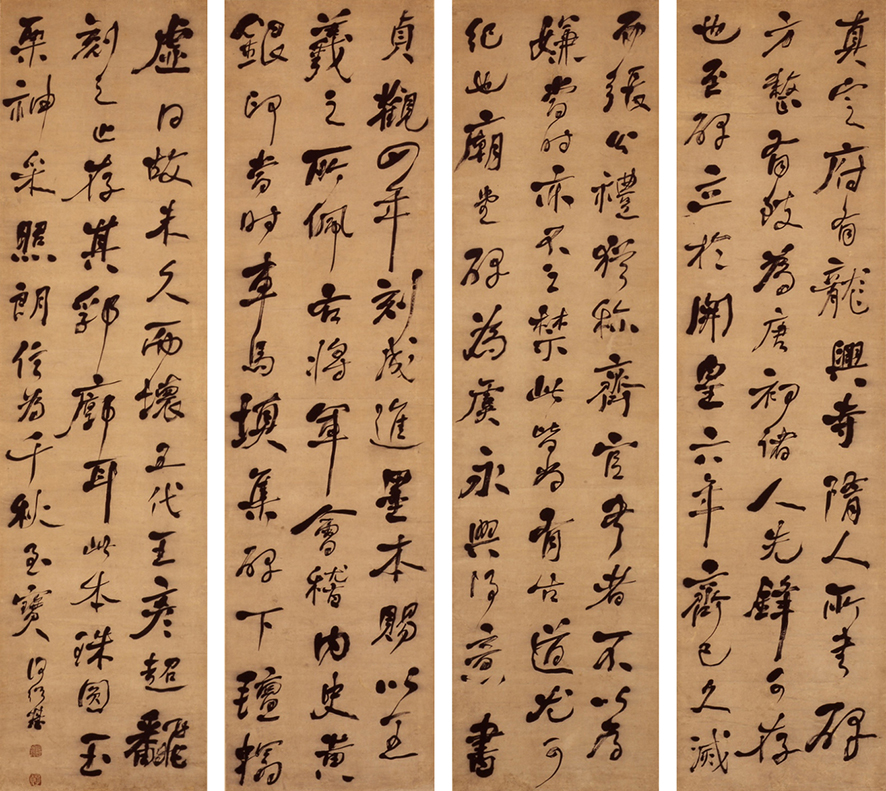 真定府有龍興寺隋人所書碑
方整有致為唐初諸人先鋒可存
也至碑立於開皇六年齊已久滅
而張公禮猶稱齊官書者不以為
嫌當時亦不之禁此皆為有古道尤可
紀也廟堂碑為虞永興得意書
貞觀四年刻成進墨本賜以王
羲之所佩右將軍會稽内史黃
銀印當時車馬填集碑下氈搨
虛日故未久而壞五代王彥超翻
刻之止存其郛廓耳此本珠圓玉
栗神采照朗信為千秋至寶 何紹基